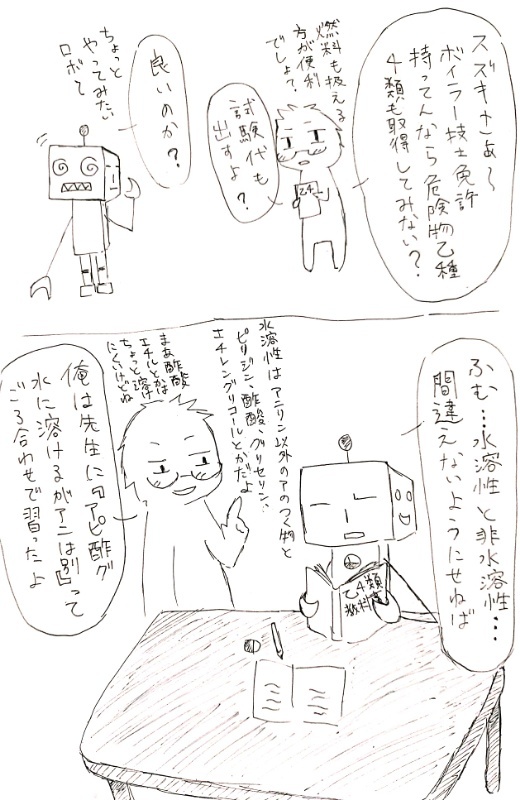 スズキさぁ〜
ボイラー技士免許
持ってんなら危険物乙種
4類も取得してみない?
燃料も扱える
方が便利
でしょ?
試験代も
出すよ?
乙4
良いのか?
ちょっと
やってみたい
ロボて
ふむ…水溶性と非水溶性…
間違えないようにせねば
水溶性はアニリン以外のアのつく物と
ピリジン、酢酸、グリセリン、
エチレングリコールとかだよ
まあ酢酸
エチルとかは
ちょっと溶け
にくいけどね
俺は先生に『アピ酢グ
水に溶けるがアニは別』って
ごろ合わせで習ったよ
乙4類
教科書